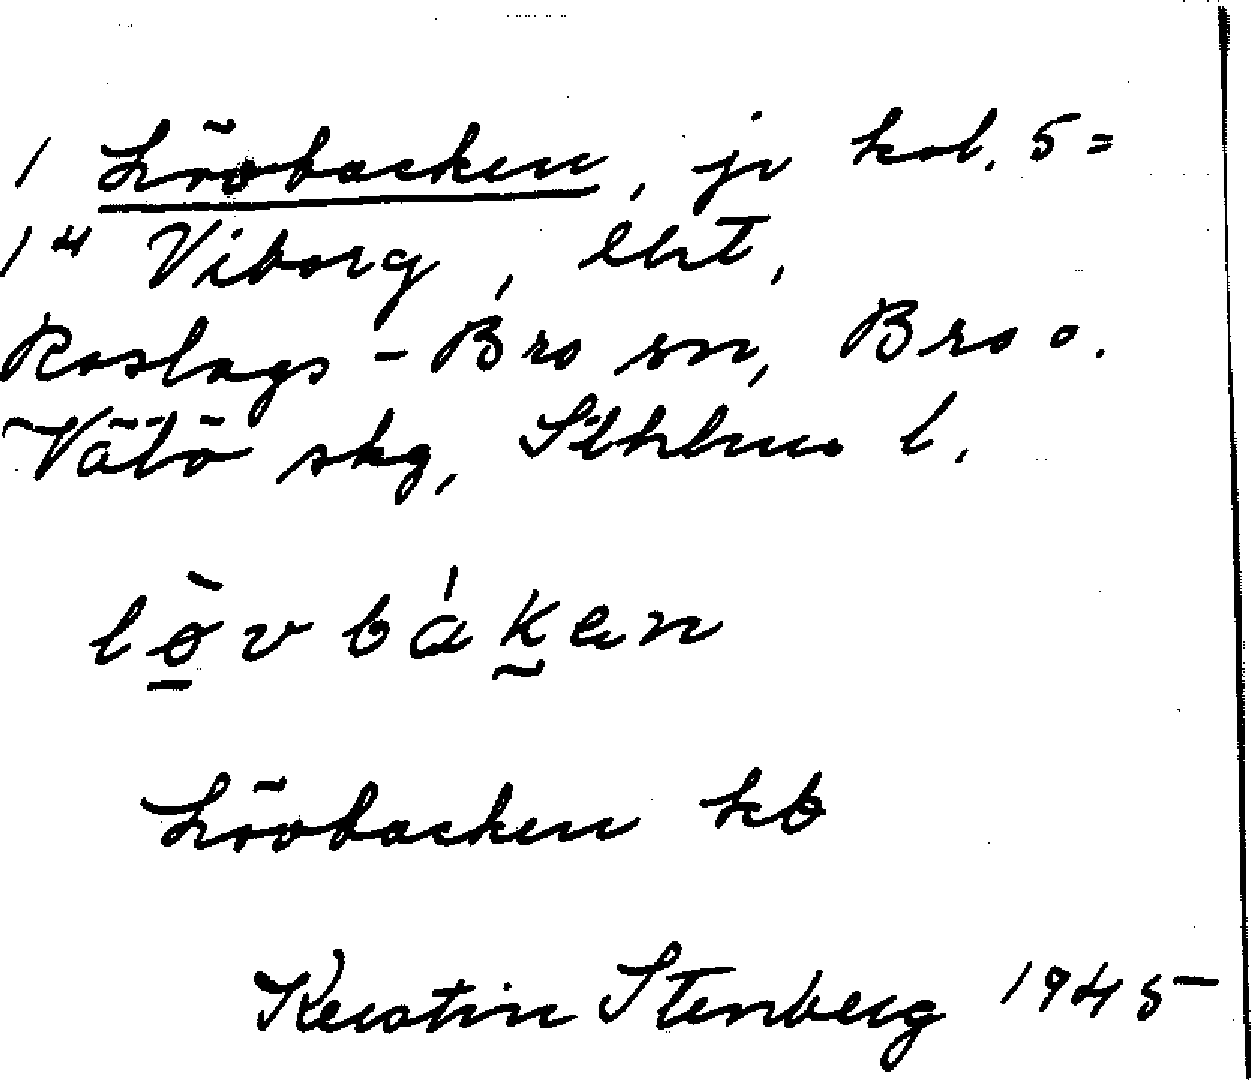 1 Lövbacken, jv kol. 5=
1⁴ Viborg, lht,
Roslags-Bro sn, Bro o.
Vätö skg, Sthlms l.
lö̀vbáken
Lövbacken kb
Kerstin Stenberg 1945